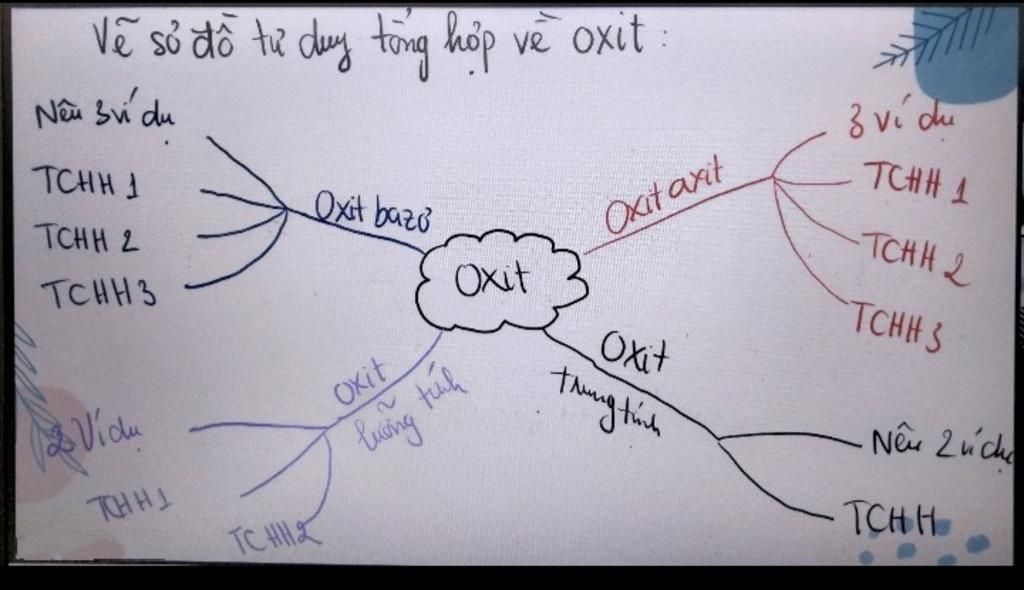 Vẽ sơ đồ tư duy tổng hợp về oxit:
Nêu 3 ví dụ
TCHH 1
TCHH 2
TCHH 3
Oxit bazơ
Oxit
Oxit axit
3 ví dụ
TCHH 1
TCHH 2
TCHH 3
Oxit
lưỡng tính
2 Ví dụ
TCHH1
TCHH2
Oxit
trung tính
Nêu 2 ví dụ
TCHH